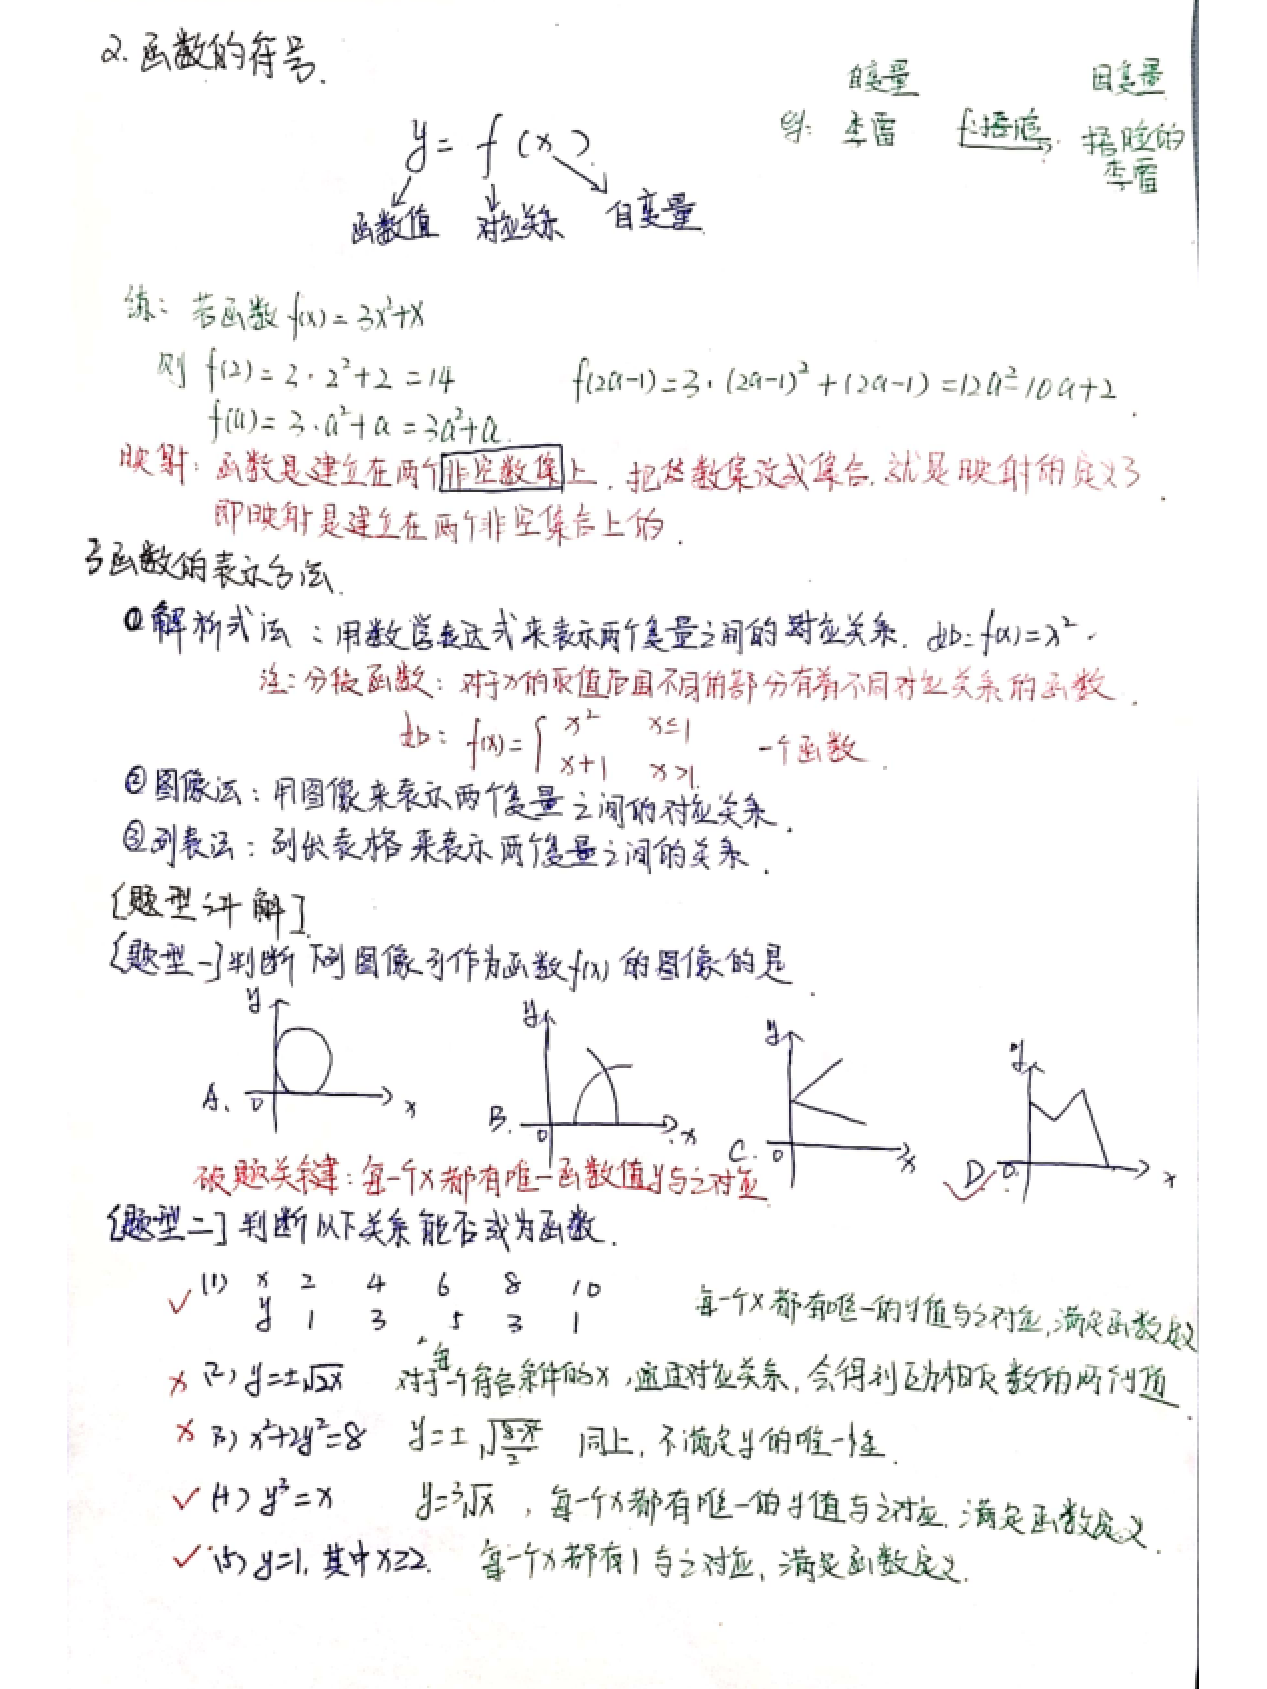 2. 函数的符号.
自变量 因变量
例: 李雷 f:捂脸 捂脸的
李雷
y = f(x)
函数值 对应关系 自变量
练: 若函数 f(x) = 3x²+x
则 f(2) = 2·2²+2 = 14 f(2a-1) = 3·(2a-1)²+(2a-1) = 12a²-10a+2.
f(a) = 3·a²+a = 3a²+a.
映射: 函数是建立在两个非空数集上. 把 数集改成集合, 就是映射的定义了.
即映射是建立在两个非空集合上的.
3 函数的表示方法.
① 解析式法: 用数学表达式来表示两个变量之间的对应关系. 如: f(x) = x².
注: 分段函数: 对于x的取值范围不同的部分有着不同对应关系的函数.
如: f(x) = { x² x≤1
x+1 x>1. 一个函数.
② 图像法: 用图像来表示两个变量之间的对应关系.
③ 列表法: 列出表格来表示两个变量之间的关系.
[题型讲解]
[题型一] 判断下列图像可作为函数f(x)的图像的是.
A. y 0 x B. y 0 x C. y 0 x D. y 0 x
破题关键: 每一个x都有唯一函数值y与之对应
[题型二] 判断以下关系能否成为函数.
✓ (1) x 2 4 6 8 10
y 1 3 5 3 1 每一个x都有唯一的y值与之对应, 满足函数定义
× (2) y=±√2x 对于每一个符合条件的x, 通过对应关系, 会得到互为相反数的两个y值.
× (3) x²+2y²=8 y=±√(8-x²)/2 同上, 不满足y的唯一性.
✓ (4) y³=x y=³√x, 每一个x都有唯一的y值与之对应. 满足函数定义.
✓ (5) y=1, 其中x≥2. 每一个x都有1与之对应, 满足函数定义.